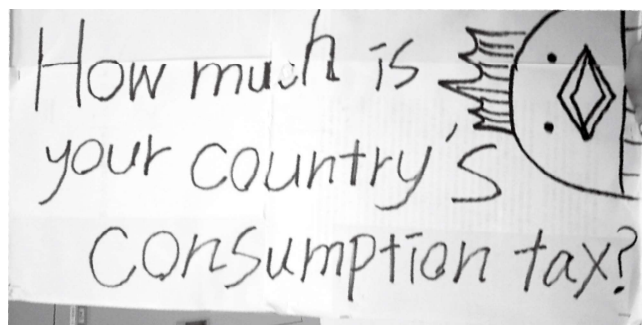 How much is
your country's
consumption tax?